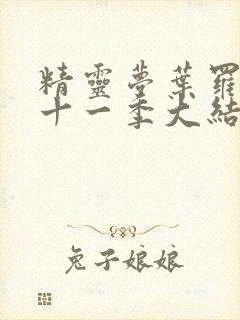 精靈夢葉羅
十一季大結
兔子娘娘